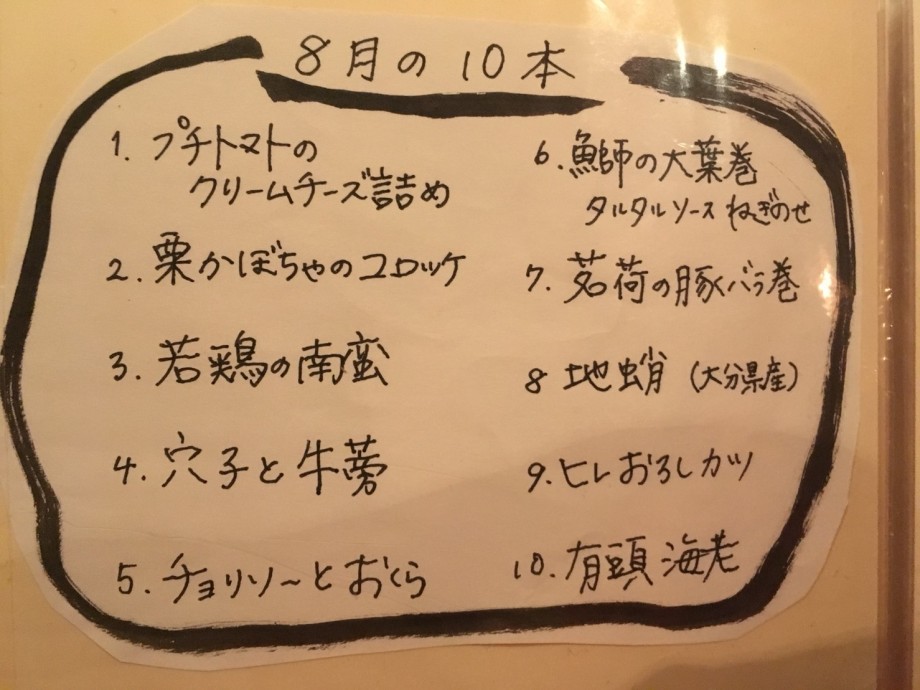 8月の10本
1. プチトマトの
クリームチーズ詰め
2. 栗かぼちゃのコロッケ
3. 若鶏の南蛮
4. 穴子と牛蒡
5. チョリソーとおくら
6. 鰤の大葉巻
タルタルソース ねぎのせ
7. 茗荷の豚バラ巻
8 地蛸 (大分県産)
9. ヒレおろしカツ
10. 有頭海老